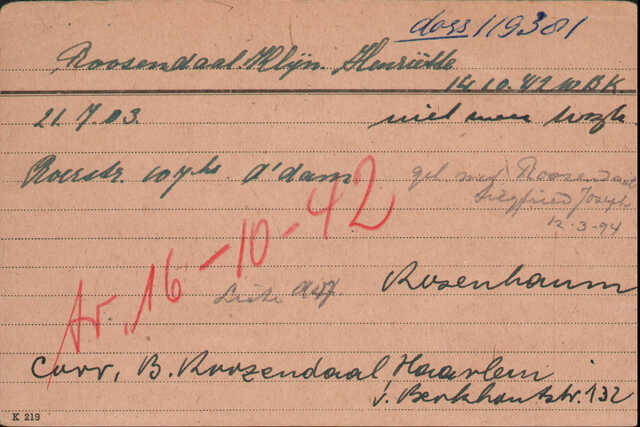 doss 119381
Roosendaal-Klijn Henriëtte
14.10.42 w BK
21.7.03.
niet meer
Roerstr. 107 hs A'dam
geh. met Roosendaal
Siegfried Joseph
12-3-94
tr. 16-10-42
Liste
Rosenbaum
Corr, B. Roozendaal, Haarlem
v. Berkhoutstr. 132
K 219